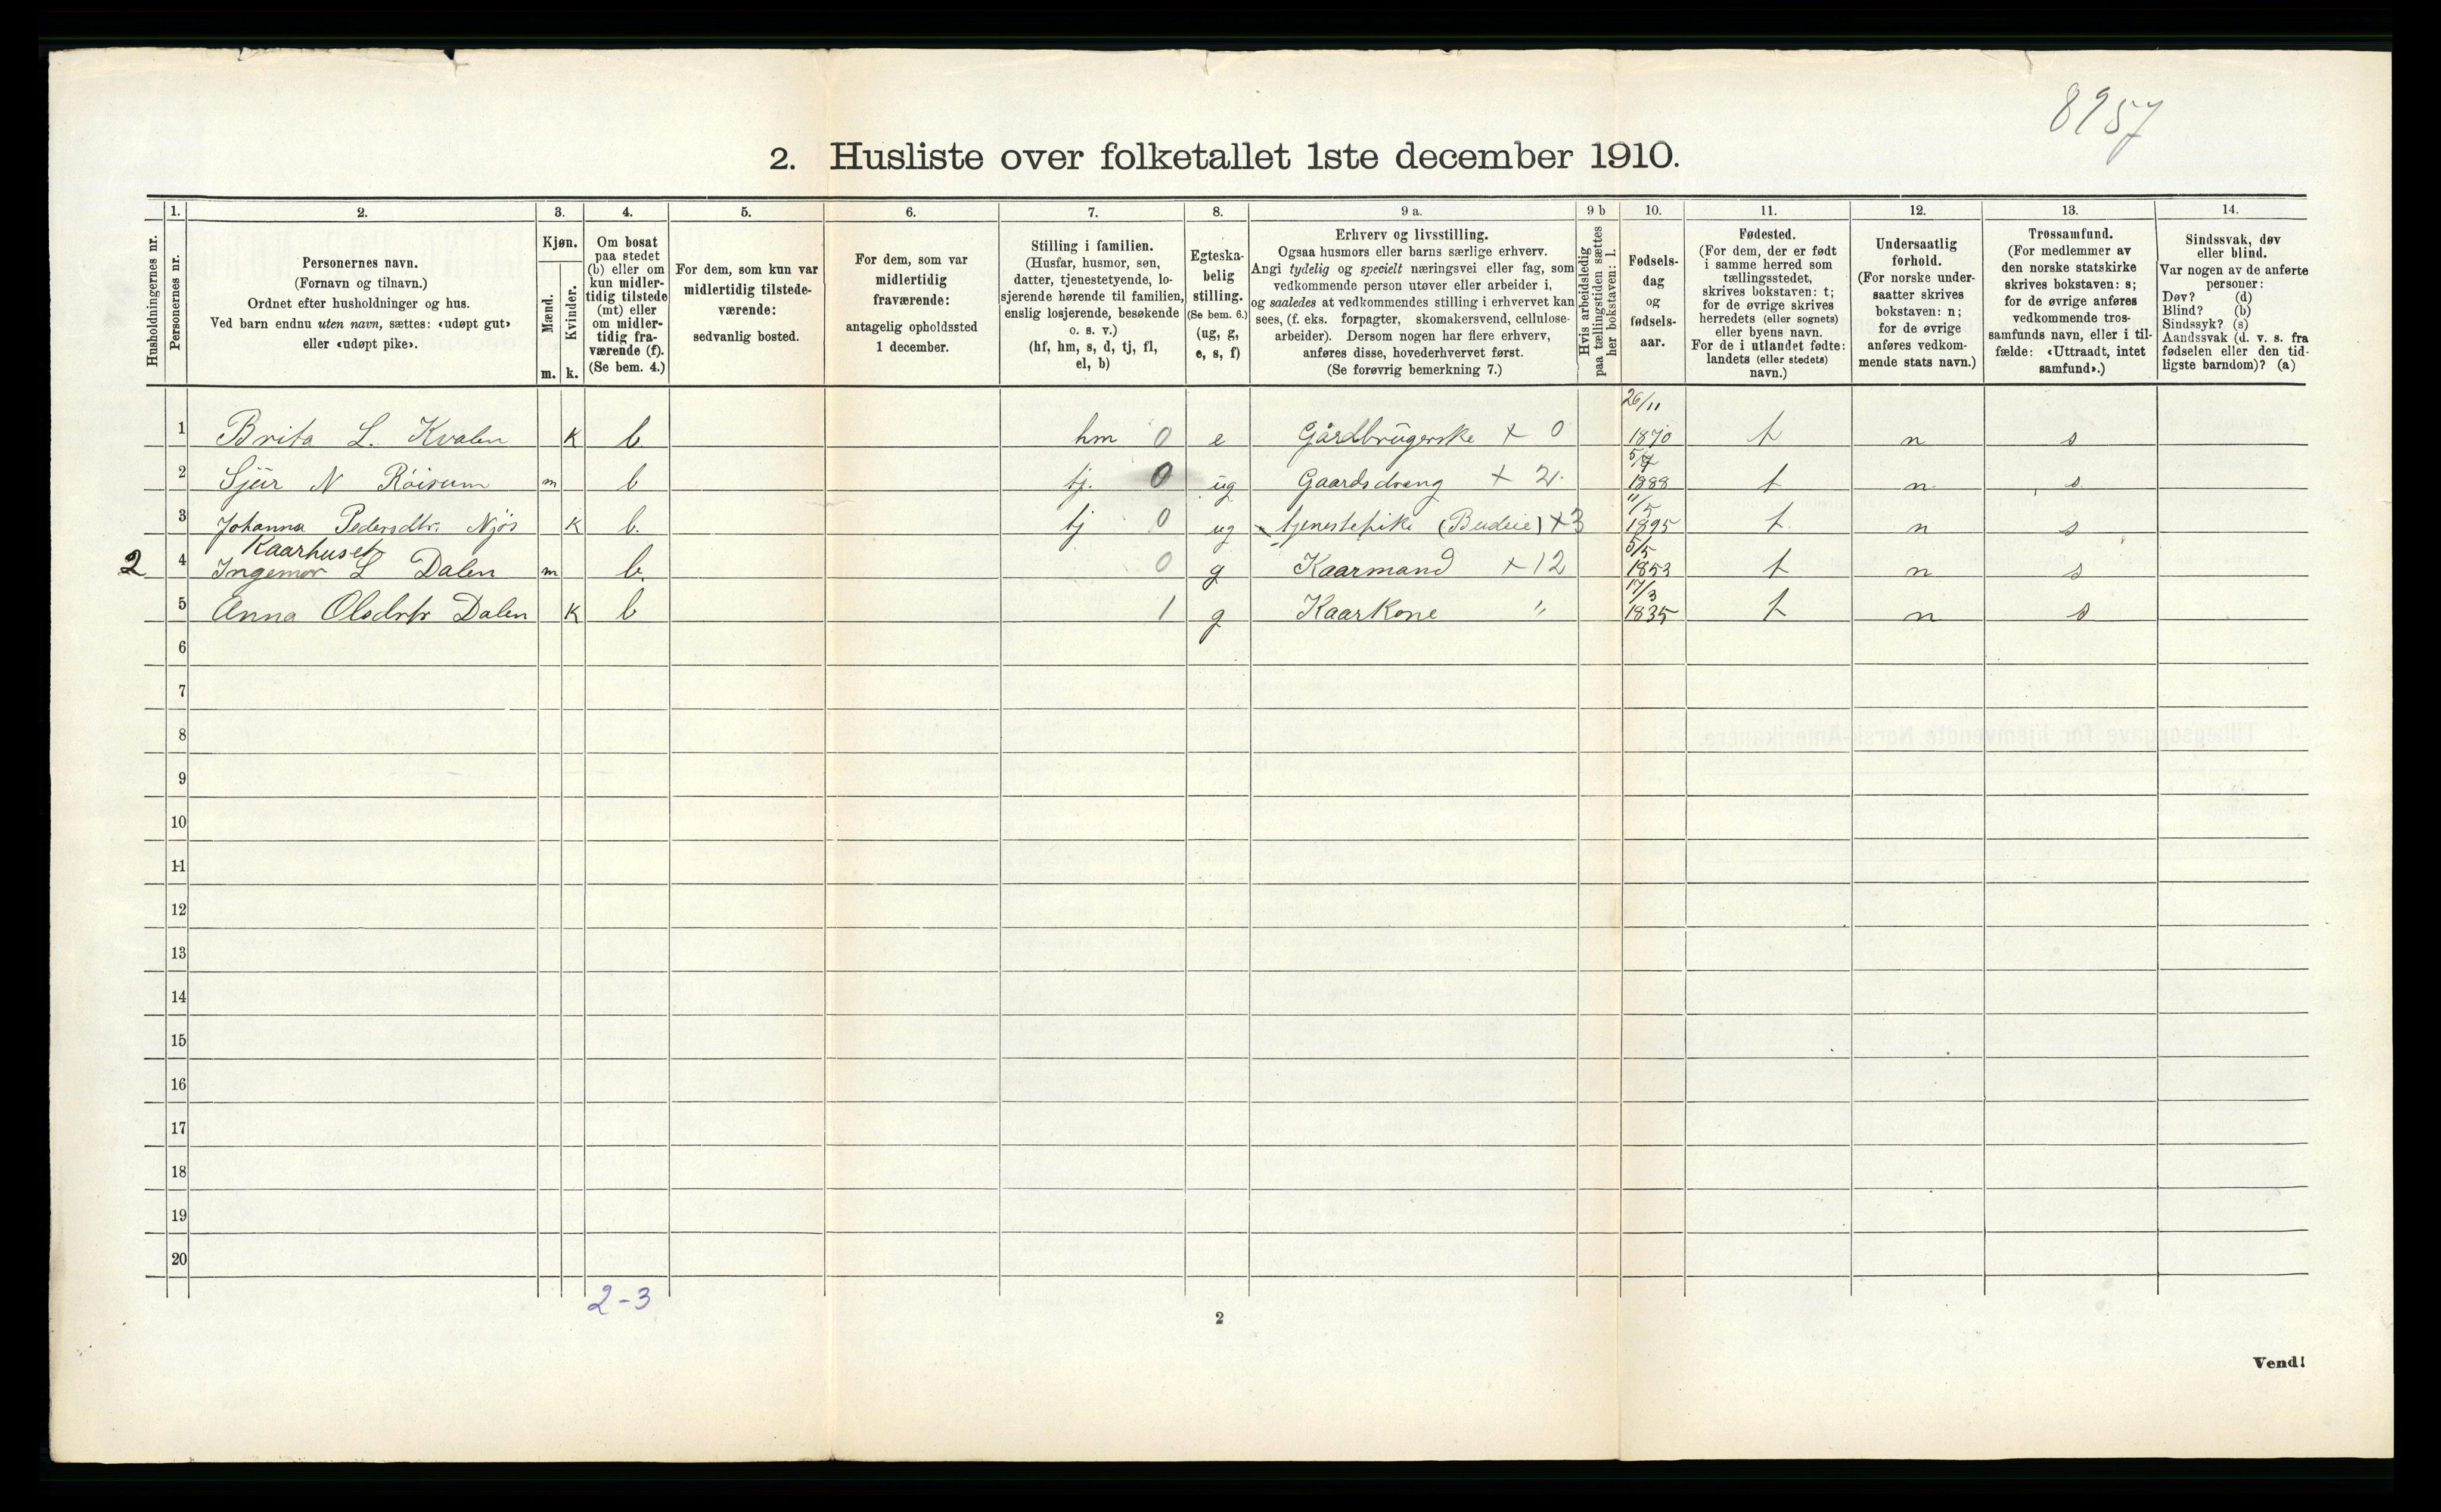 8957
2. Husliste over folketallet 1ste december 1910.
1. 2. 3. 4. 5. 6. 7. 8. 9 a. 9 b 10. 11. 12. 13. 14.
Husholdningernes nr.
Personernes nr.
Personernes navn.
(Fornavn og tilnavn.)
Ordnet efter husholdninger og hus.
Ved barn endnu uten navn, sættes: «udøpt gut»
eller «udøpt pike».
Kjøn.
Mænd.
Kvinder.
m. k.
Om bosat
paa stedet
(b) eller om
kun midler-
tidig tilstede
(mt) eller
om midler-
tidig fra-
værende (f).
(Se bem. 4.)
For dem, som kun var
midlertidig tilstede-
værende:
sedvanlig bosted.
For dem, som var
midlertidig
fraværende:
antagelig opholdssted
1 december.
Stilling i familien.
(Husfar, husmor, søn,
datter, tjenestetyende, lo-
sjerende hørende til familien,
enslig losjerende, besøkende
o. s. v.)
(hf, hm, s, d, tj, fl,
el, b)
Egteska-
belig
stilling.
(Se bem. 6.)
(ug, g,
e, s, f)
Erhverv og livsstilling.
Ogsaa husmors eller barns særlige erhverv.
Angi tydelig og specielt næringsvei eller fag, som
vedkommende person utøver eller arbeider i,
og saaledes at vedkommendes stilling i erhvervet kan
sees, (f. eks. forpagter, skomakersvend, cellulose-
arbeider). Dersom nogen har flere erhverv,
anføres disse, hovederhvervet først.
(Se forøvrig bemerkning 7.)
Hvis arbeidsledig
paa tællingstiden sættes
her bokstaven: l.
Fødsels-
dag
og
fødsels-
aar.
Fødested.
(For dem, der er født
i samme herred som
tællingsstedet,
skrives bokstaven: t;
for de øvrige skrives
herredets (eller sognets)
eller byens navn.
For de i utlandet fødte:
landets (eller stedets)
navn.)
Undersaatlig
forhold.
(For norske under-
saatter skrives
bokstaven: n;
for de øvrige
anføres vedkom-
mende stats navn.)
Trossamfund.
(For medlemmer av
den norske statskirke
skrives bokstaven: s;
for de øvrige anføres
vedkommende tros-
samfunds navn, eller i til-
fælde: «Uttraadt, intet
samfund».)
Sindssvak, døv
eller blind.
Var nogen av de anførte
personer:
Døv? (d)
Blind? (b)
Sindssyk? (s)
Aandssvak (d. v. s. fra
fødselen eller den tid-
ligste barndom)? (a)
26/11
1 Brita L. Kvalen K b hm 0 e Gårdbrugerske + 0 1870 t n s
2 Sjur N Röisum m b tj. 0 ug Gaardsdreng + 2. 5/7 1888 t n s
3 Johanna Pedersdtr. Njøs K b. tj 0 ug tjenestepike (Budeie) + 3 11/5 1895 t n s
Kaarhuset
2 4 Ingemor L Dalen m b. 0 g Kaarmand + 12 5/5 1853 t n s
5 Anna Olsdtr Dalen K b 1 g Kaarkone " 17/3 1835 t n s
6
7
8
9
10
11
12
13
14
15
16
17
18
19
20
2-3
2
Vend!